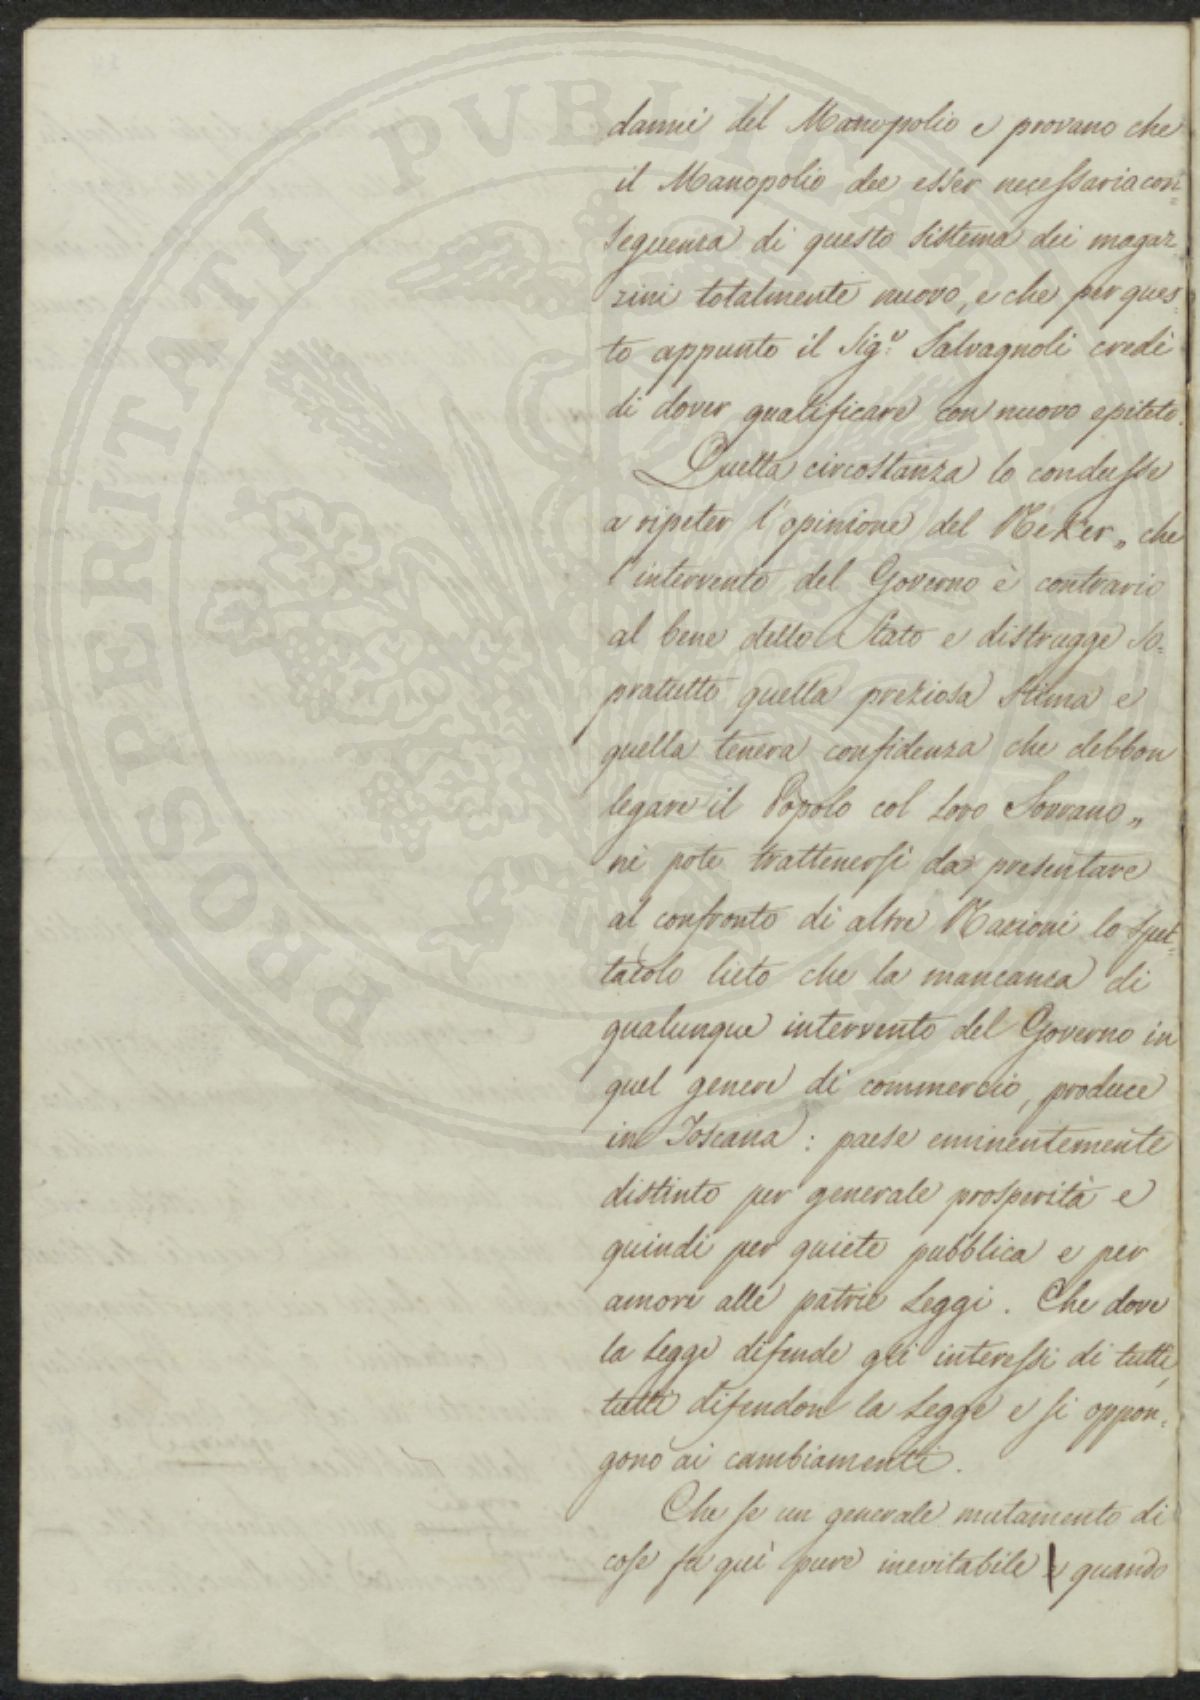 danni del Manopolio e provano che
il Manopolio dee esser necessaria con=
seguenza di questo sistema dei magaz=
zini totalmente nuovo, e che per ques=
to appunto il Sig.r Salvagnoli credè
di dover qualificare con nuovo epiteto.
Quella circostanza lo condusse
a ripeter l'opinione del Neker „ che
l'intervento del Governo è contrario
al bene dello Stato e distrugge so=
pratutto quella preziosa stima e
quella tenera confidenza che debbon
legare il Popolo col loro Sovrano „
nè potè trattenersi da presentare
al confronto di altre Nazioni lo spet=
tacolo lieto che la mancanza di
qualunque intervento del Governo in
quel genere di commercio, produce
in Toscana : paese eminentemente
distinto per generale prosperità e
quindi per quiete pubblica e per
amore alle patrie Leggi. Che dove
la Legge difende gli interessi di tutti,
tutti difendon la Legge e si oppon=
gono ai cambiamenti.
Che se un generale mutamento di
cose fu quì pure inevitabile e quando
PROSPERITATI PVBLICAE